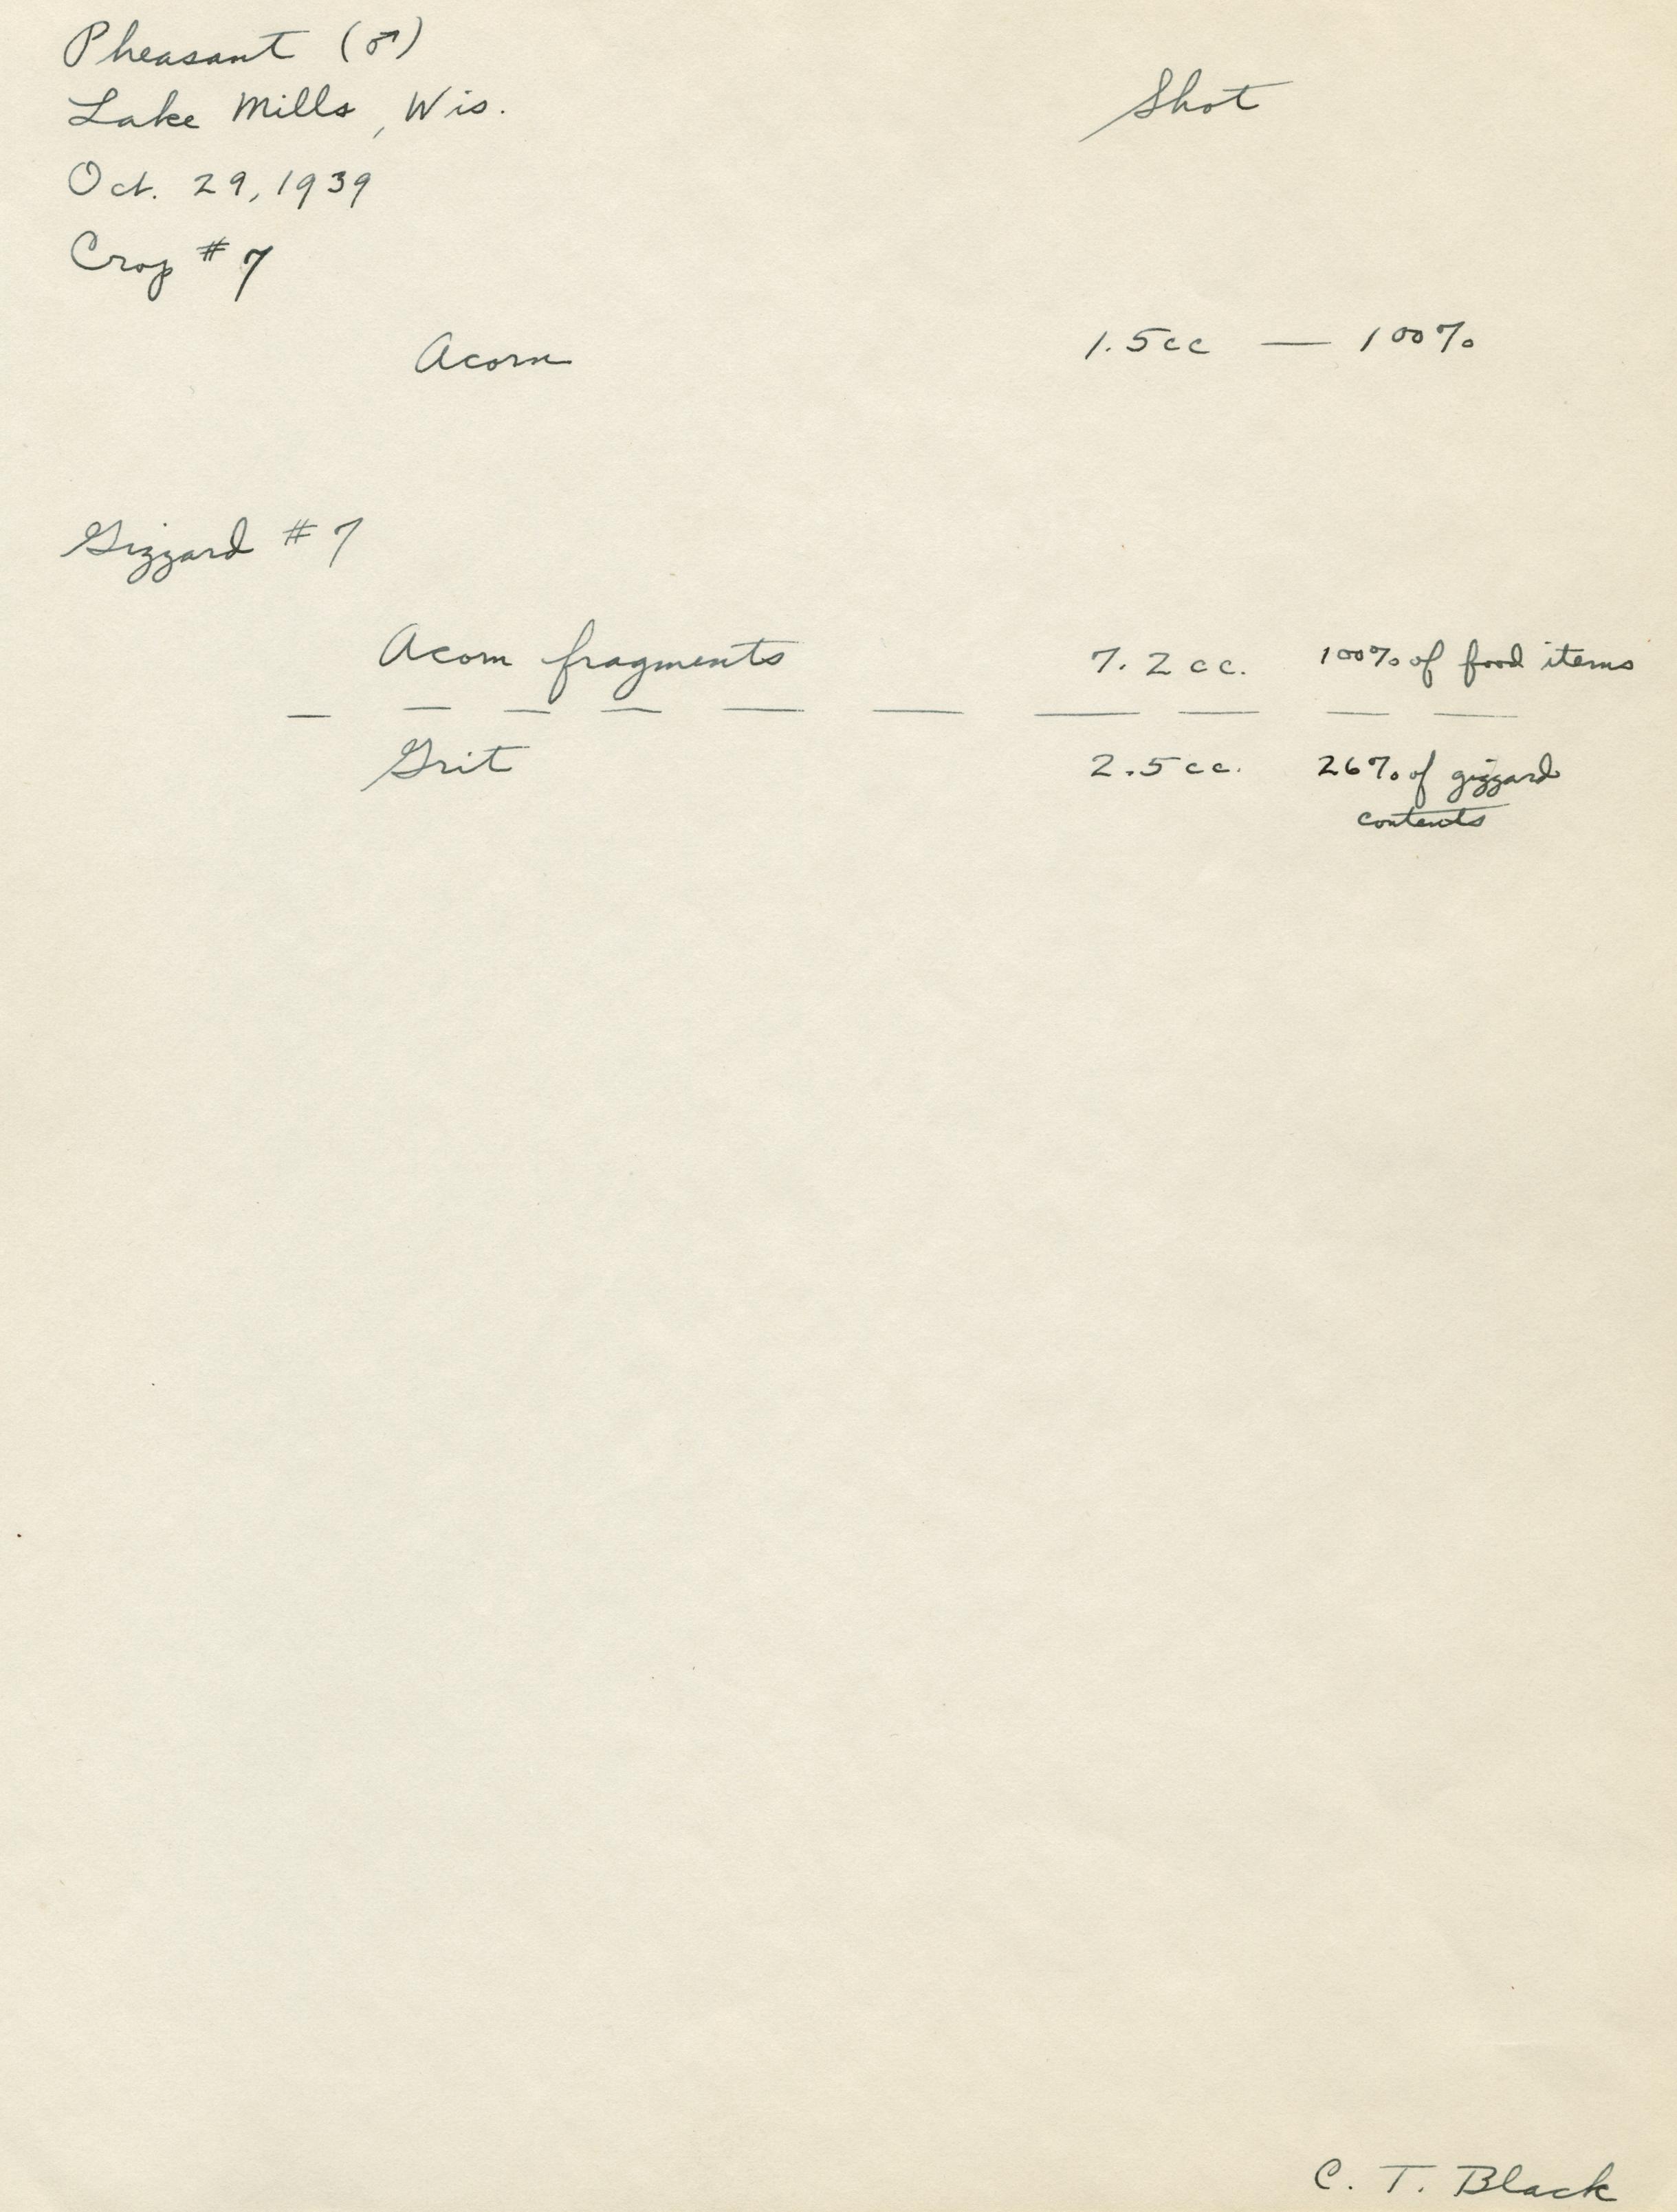 Pheasant (♂)
Shot
Lake Mills, Wis.
Oct. 29, 1939
Crop # 7
Acorn 1.5cc — 100%
Gizzard # 7
Acorn fragments 7.2 cc. 100% of food items
Grit 2.5 cc. 26% of gizzard
contents
C. T. Black